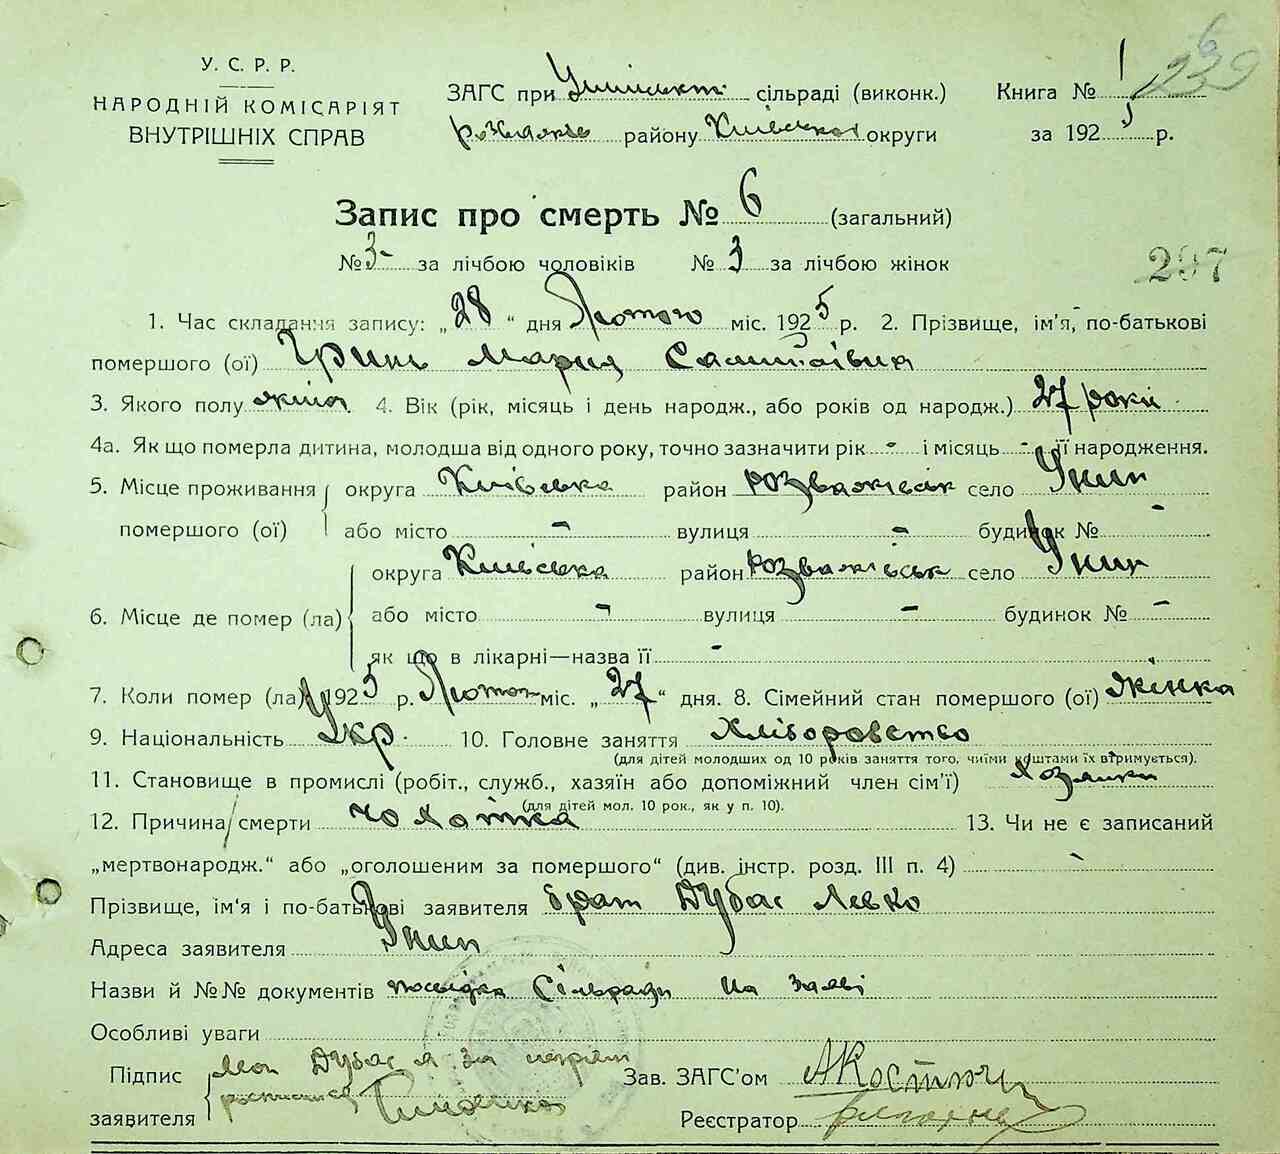 У. С. Р. Р.
НАРОДНІЙ КОМІСАРІЯТ
ВНУТРІШНІХ СПРАВ
ЗАГС при сільраді (виконк.)
району Київської округи
Книга № 1
за 1925 р.
6
239
Запис про смерть № 6 (загальний)
№ 3 за лічбою чоловіків № 3 за лічбою жінок
297
1. Час складання запису: „28“ дня Лютого міс. 1925 р. 2. Прізвище, ім'я, по-батькові
помершого (ої) Гринь Мария
3. Якого полу жіно. 4. Вік (рік, місяць і день народж., або років од народж.) 27 роки
4а. Як що померла дитина, молодша від одного року, точно зазначити рік - і місяць - її народження.
5. Місце проживання округа Київська район розважівськ село Унин
помершого (ої) або місто - вулиця - будинок № -
округа Київська район розважівськ село Унин
6. Місце де помер (ла) або місто - вулиця - будинок № -
як що в лікарні—назва її -
7. Коли помер (ла) 1925 р. Лютого міс. „27“ дня. 8. Сімейний стан помершого (ої) жінка
9. Національність Укр. 10. Головне заняття Хліборовство
(для дітей молодших од 10 років заняття того, чиїми коштами їх втримується).
11. Становище в промислі (робіт., служб., хазяїн або допоміжний член сім'ї) хозяйка
(для дітей мол. 10 рок., як у п. 10).
12. Причина смерти чохотка 13. Чи не є записаний
„мертвонародж.“ або „оголошеним за помершого“ (див. інстр. розд. III п. 4) -
Прізвище, ім'я і по-батькові заявителя брат Дубас Левко
Адреса заявителя Унин
Назви й №№ документів посвідка Сільради на заяві
Особливі уваги
Підпис Дубас а за Зав. ЗАГС'ом АКостюч
заявителя Реєстратор